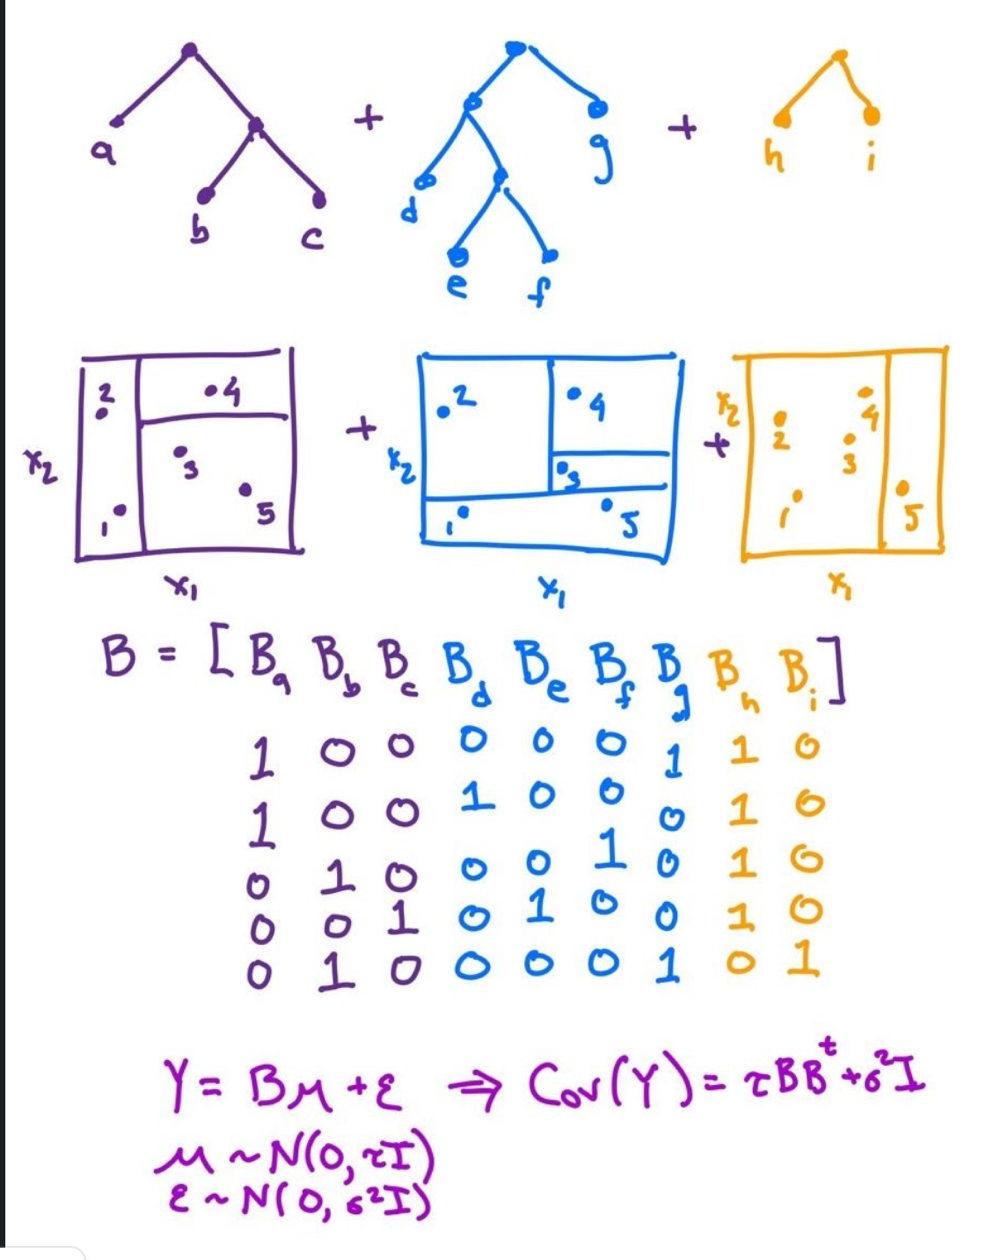 + +
a g h i
b c d
e f
2 4 + 2 4 + 2 4
x₂ 3 x₂ 3 x₂ 3
1 5 1 5 1 5
x₁ x₁ x₁
B = [B_a B_b B_c B_d B_e B_f B_g B_h B_i]
1 0 0 0 0 0 1 1 0
1 0 0 1 0 0 0 1 0
0 1 0 0 0 1 0 1 0
0 0 1 0 1 0 0 1 0
0 1 0 0 0 0 1 0 1
Y = Bμ + ε ⇒ Cov(Y) = τBBᵗ + σ²I
μ ~ N(0, τI)
ε ~ N(0, σ²I)